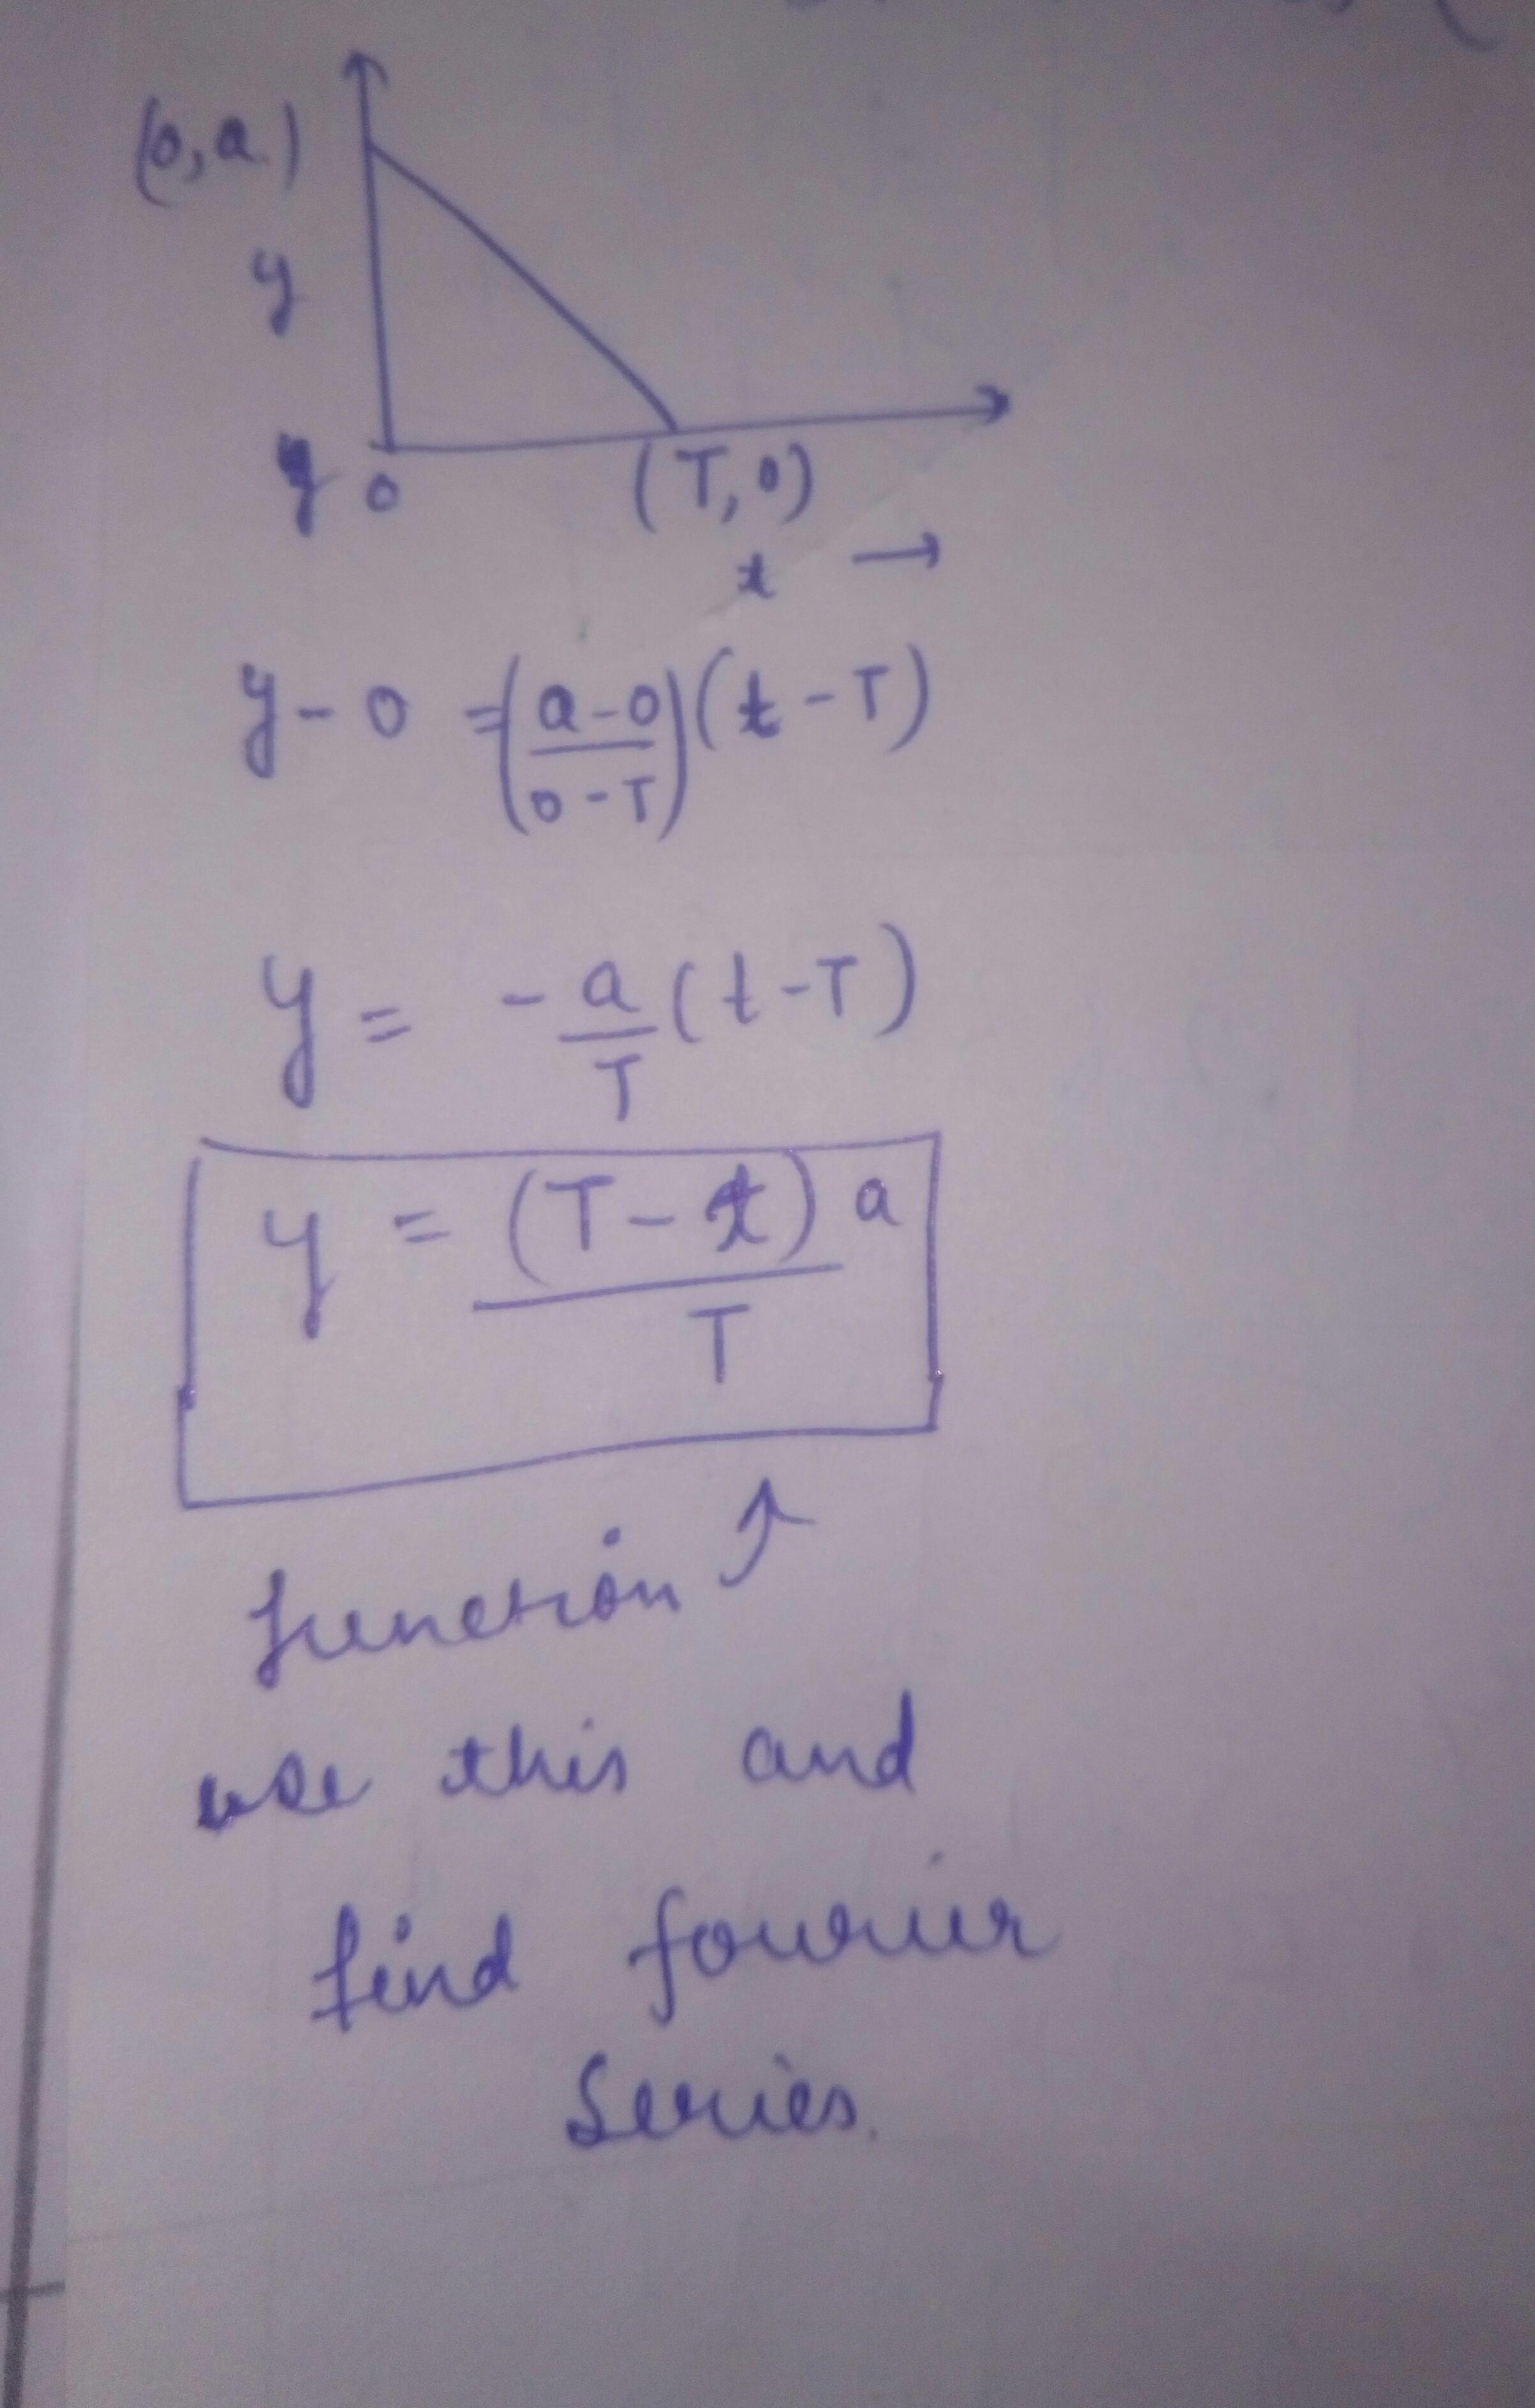 (0,a)
y
y 0
(T,0)
t →
y - 0 = (a-0 / 0-T)(t-T)
y = -a/T (t-T)
y = (T-t)a / T
function ↑
use this and
find fourier
Series.